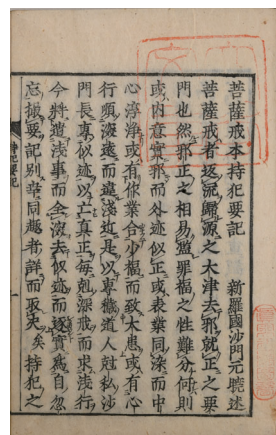 菩薩戒本持犯要記
新羅國沙門元曉述
菩薩戒者返流歸源之大津去邪就正之要
門也然邪正之相易濫罪福之性難分何則
或内意實邪而外迹似正或表業同染而中
心淳淨或有作業合少福而致大患或有心
行順深遠而違淺近是以專穢道人尅私沙
門長專似迹以亡真正每尅深戒而求淺行
今將遣淺事而全深去似迹而逐實爲自忽
忘撮要記別幸同趣者詳而取决矣持犯之
持犯要記
一